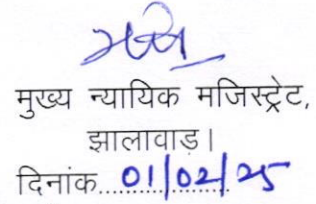 मुख्य न्यायिक मजिस्ट्रेट,
झालावाड़।
दिनांक....01/02/25